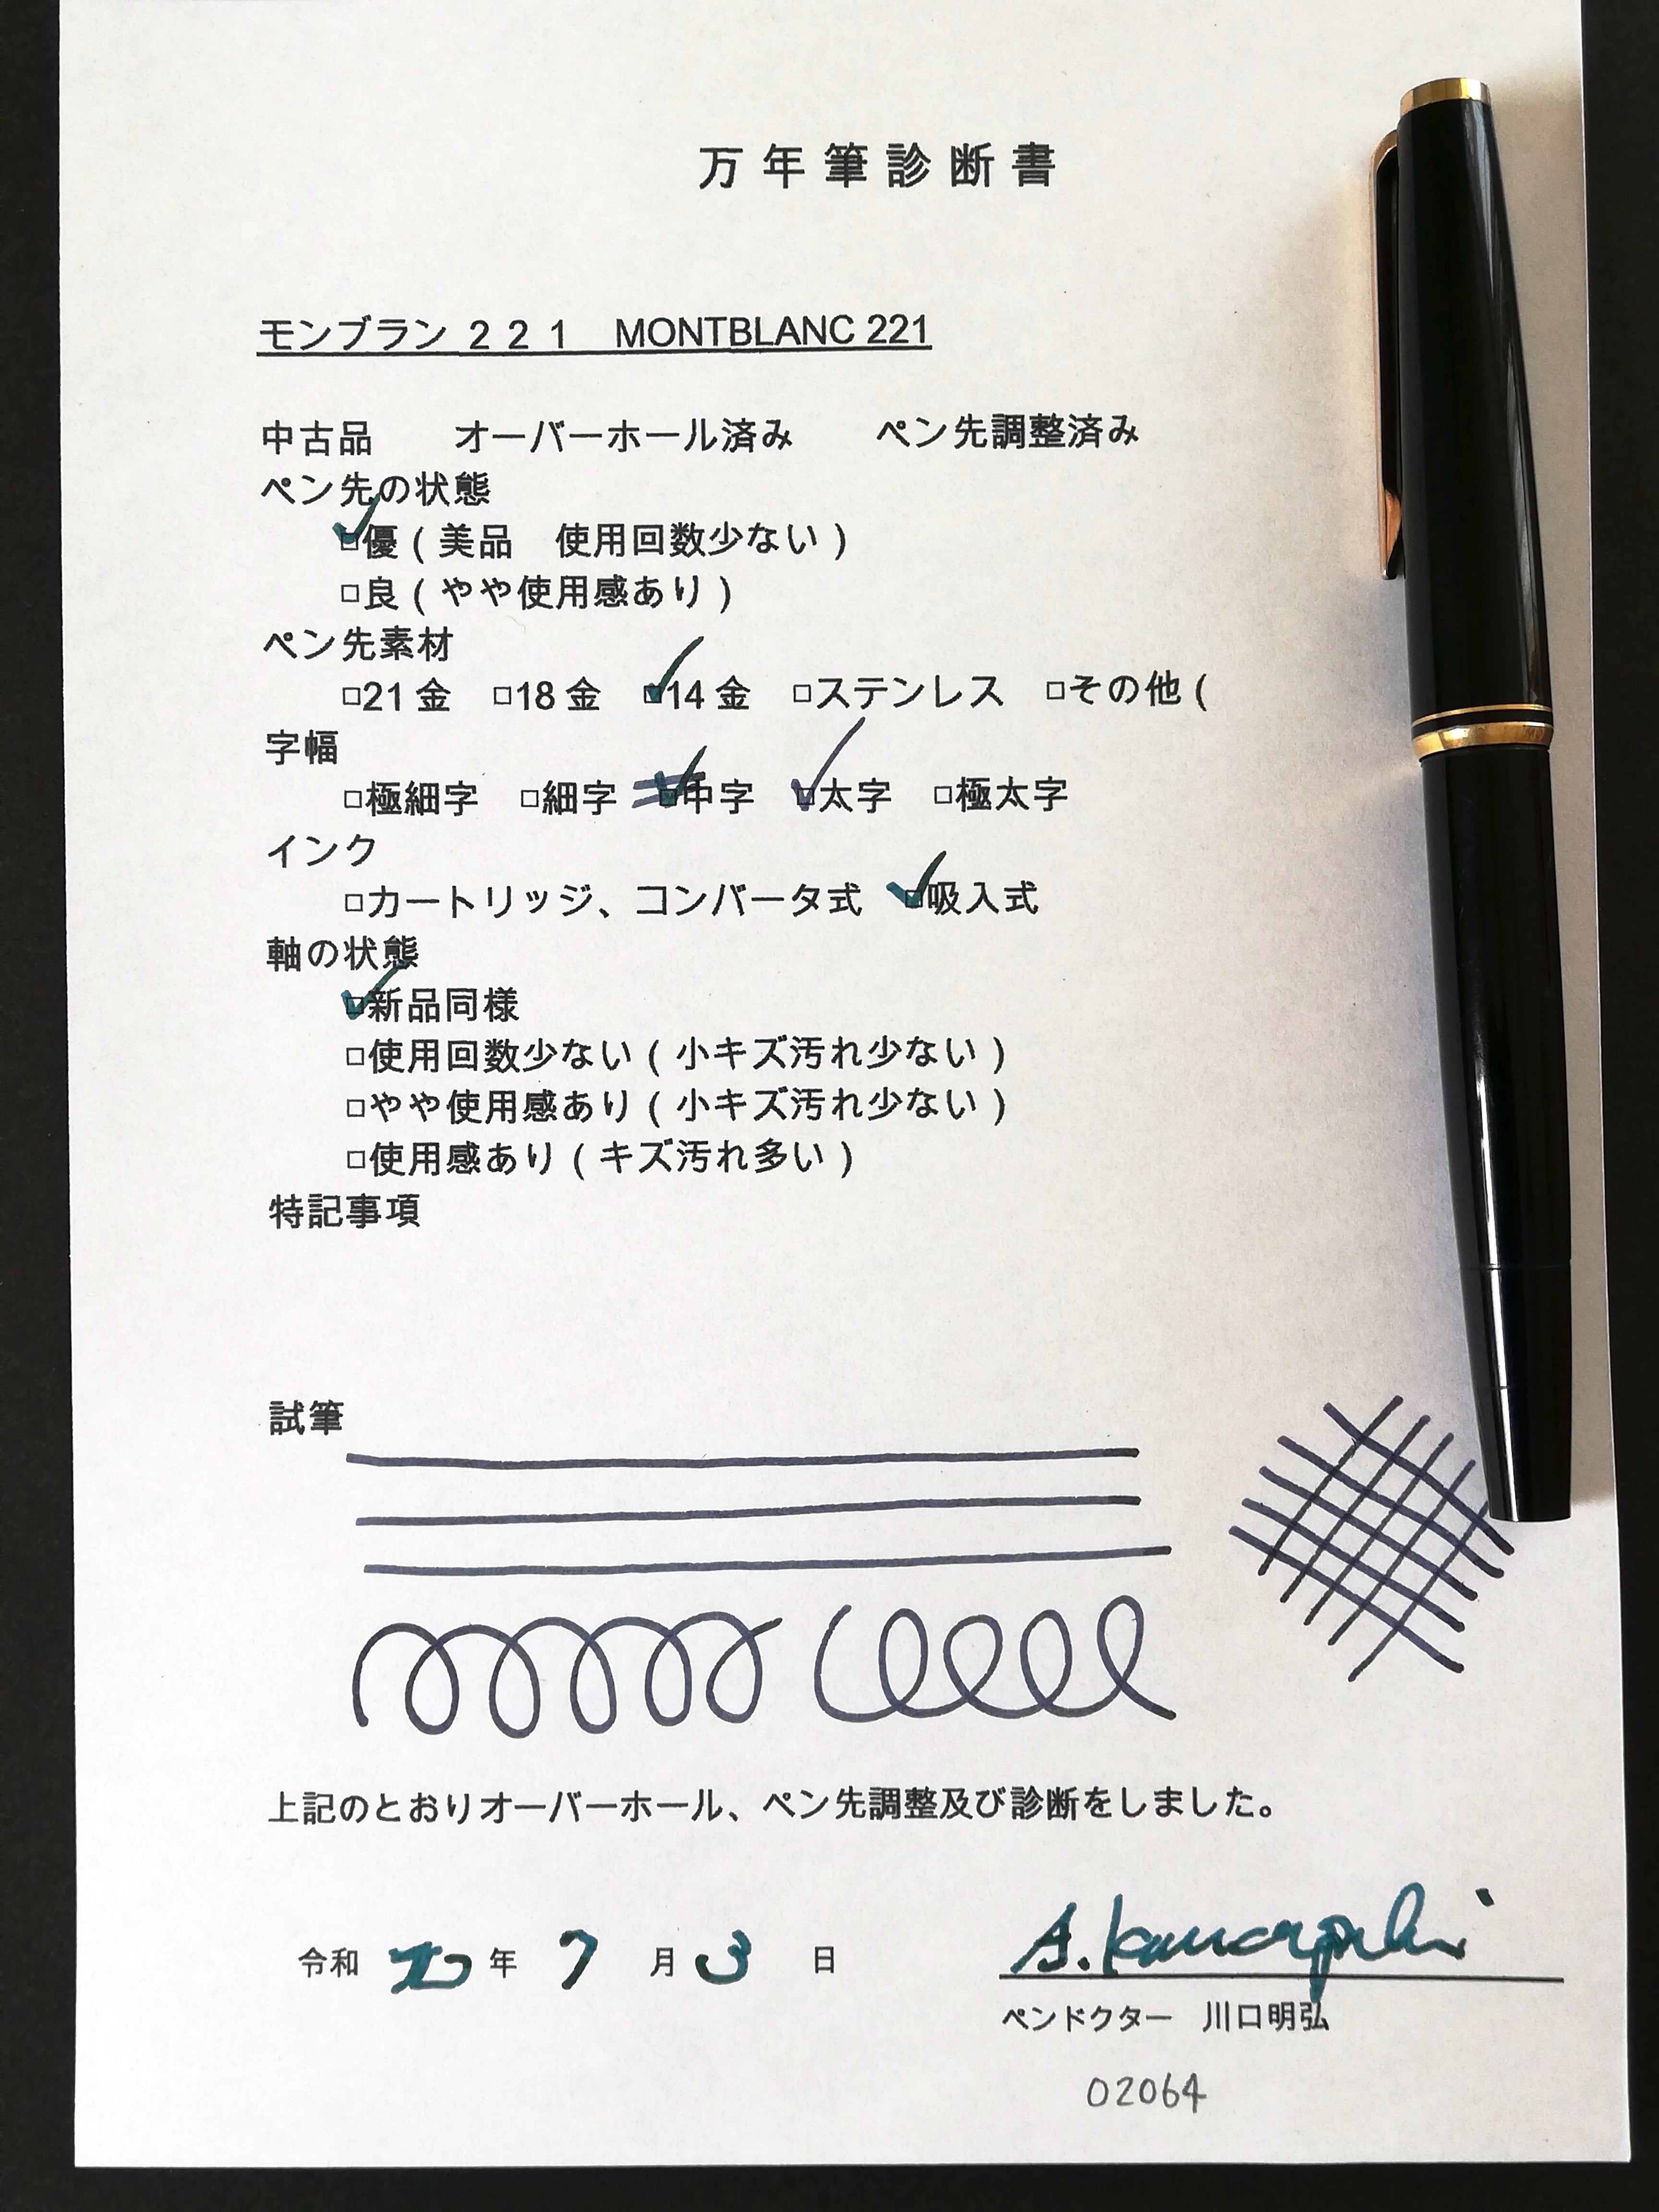 万年筆診断書
モンブラン 221 MONTBLANC 221
中古品 オーバーホール済み ペン先調整済み
ペン先の状態
☑優(美品 使用回数少ない)
□良(やや使用感あり)
ペン先素材
□21金 □18金 ☑14金 □ステンレス □その他(
字幅
□極細字 □細字 ☑中字 ☑太字 □極太字
インク
□カートリッジ、コンバータ式 ☑吸入式
軸の状態
☑新品同様
□使用回数少ない(小キズ汚れ少ない)
□やや使用感あり(小キズ汚れ少ない)
□使用感あり(キズ汚れ多い)
特記事項
試筆
上記のとおりオーバーホール、ペン先調整及び診断をしました。
令和 元年 7月 3日
A. Kawaguchi
ペンドクター 川口明弘
02064